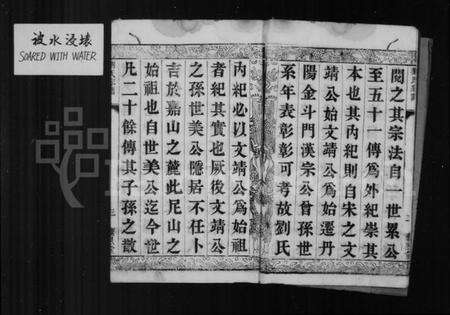 被水浸壞
SOAKED WITH WATER
閱之其宗法自一世累公
至五十一傳為外紀崇其
本也其內紀則自宋之文
靖公始文靖公始遷丹
陽金斗門漢宗公曾孫世
系年表彰彰可考故劉氏
內紀必以文靖公為始祖
者紀其實也厥後文靖公
之孫世美公隱居不仕卜
吉於嘉山之麓此尼山之
始祖也自世美公迄今世
凡二十餘傳其子孫之散